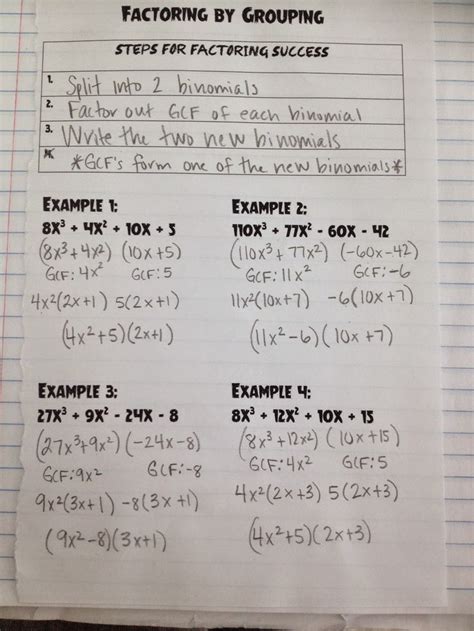 FACTORING BY GROUPING
STEPS FOR FACTORING SUCCESS
1. Split into 2 binomials
2. Factor out GCF of each binomial
3. Write the two new binomials
*GCF's form one of the new binomials*
EXAMPLE 1:
8X³ + 4X² + 10X + 5
(8x³+4x²) (10x+5)
GCF: 4x² GCF: 5
4x²(2x+1) 5(2x+1)
(4x²+5)(2x+1)
EXAMPLE 2:
110X³ + 77X² - 60X - 42
(110x³+77x²) (-60x-42)
GCF: 11x² GCF: -6
11x²(10x+7) -6(10x+7)
(11x²-6)(10x+7)
EXAMPLE 3:
27X³ + 9X² - 24X - 8
(27x³+9x²) (-24x-8)
GCF: 9x² GCF: -8
9x²(3x+1) -8(3x+1)
(9x²-8)(3x+1)
EXAMPLE 4:
8X³ + 12X² + 10X + 15
(8x³+12x²) (10x+15)
GCF: 4x² GCF: 5
4x²(2x+3) 5(2x+3)
(4x²+5)(2x+3)